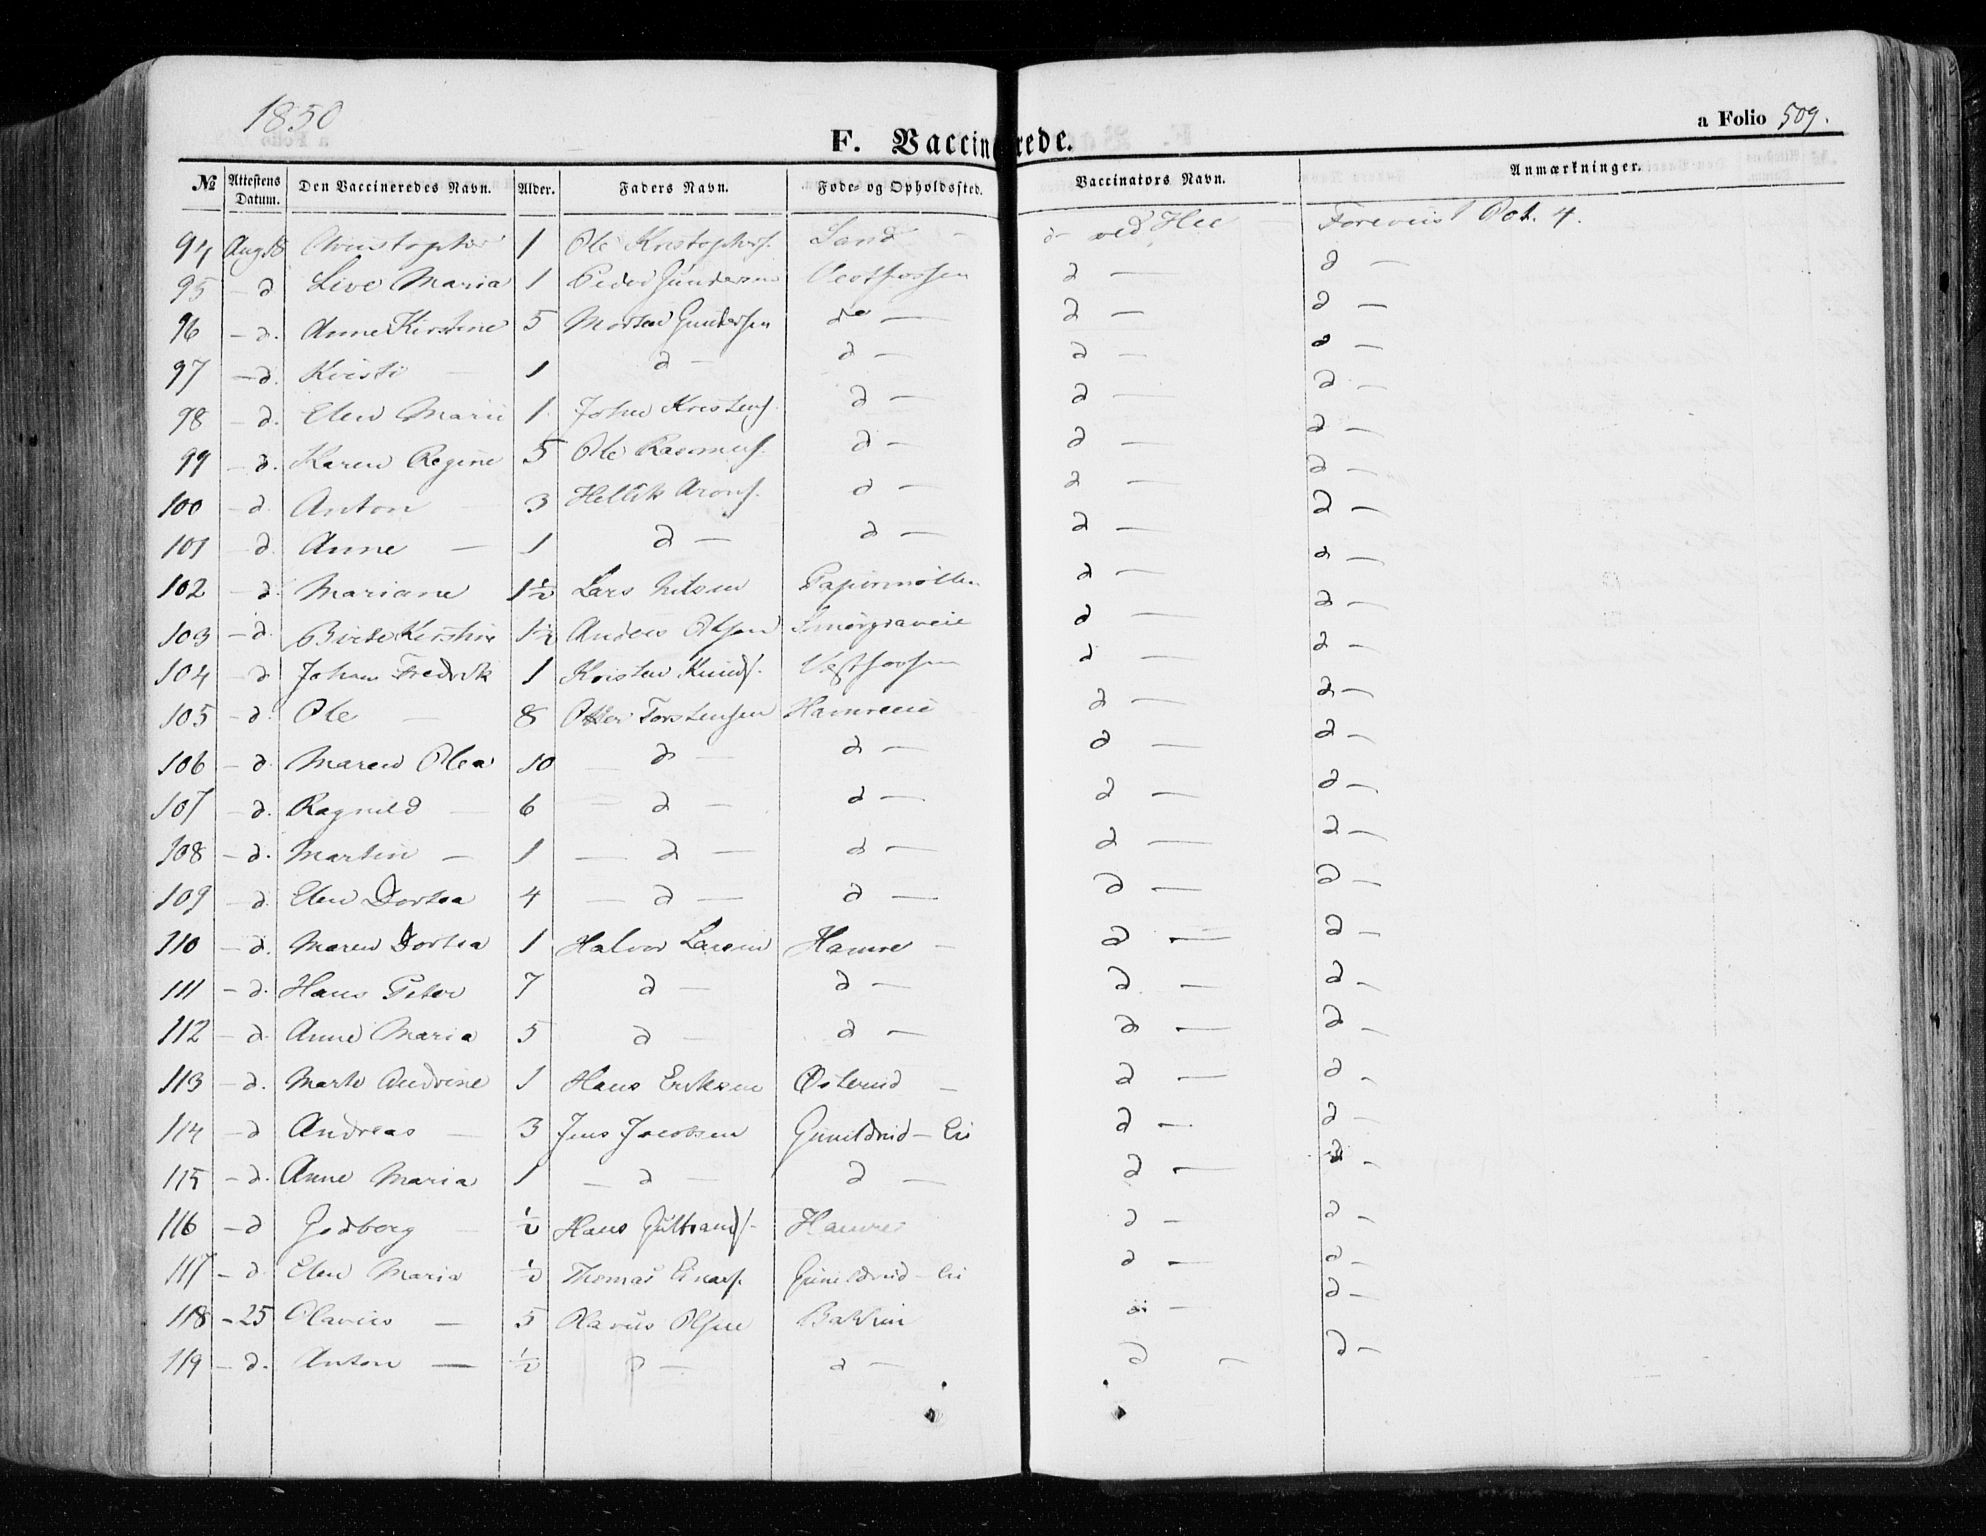 1850
F. Vaccinerede.
a Folio 509.
№ Attestens Datum. Den Vaccineredes Navn. Alder. Faders Navn. Føde- og Opholdssted. Vaccinators Navn. Anmærkninger.
94 Aug 18 Christopher 1 Ole Kristophers. Sand d- ved Hee Foreviist Pot. 4.
95 - d Live Maria 1 Peder Gundersen Vestfossen d - d -
96 - d. Anne Kirstine 5 Morten Gundersen do - d - d -
97 - d. Kristi - 1 d - d - d - d -
98 - d. Elen Marie 1. Johan Kristens. d - d - d -
99 - d. Karen Regine 5 Ole Rasmus. d - d - d -
100 - d. Anton - 3 Hellik Arons. d - d - d -
101 - d. Anne - 1 d - d - d - d -
102 - d. Mariane 1½ Lars Nilsen Papirmøllen d - d -
103 - d. Birte Kirstine 1½ Anders Olsen Smørgraveie d - d -
104 - d Johan Fredrik 1 Kristen Knuds. Vestfossen d - d -
105 - d. Ole - 8 Torstensen Hamreeie d - d -
106 - d. Maren Olea 10 d - d - d - d -
107 - d. Ragnild - 6 - d - d - d - d -
108 - d. Martin - 1 - d - d - d - d -
109 - d. Elen Dortea 4 - d - d - d - d -
110 - d. Maren Dortea 1 Halvor Larsen Hamre - d - d -
111 - d. Hans Peter 7 d - d - d. - d -
112 - d. Anne Maria 5 d - d - d - d -
113 - d. Marte Andrine 1 Hans Eriksen Østerud - d - d -
114 - d Andreas - 3 Jens Jacobsen Gunildrud - Ei d - d -
115 - d. Anne Maria 1 - d - d - d - d -
116 - d Godborg - ½ Hans Gulbrands. Hamre d - d -
117 - d. Elen Maria ½ Thomas Einars. Gunildrud - Ei d - d -
118 - 25 Olavus - 5 Olavus Olsen d -
119 - d. Anton - ½ d - d - d - d -